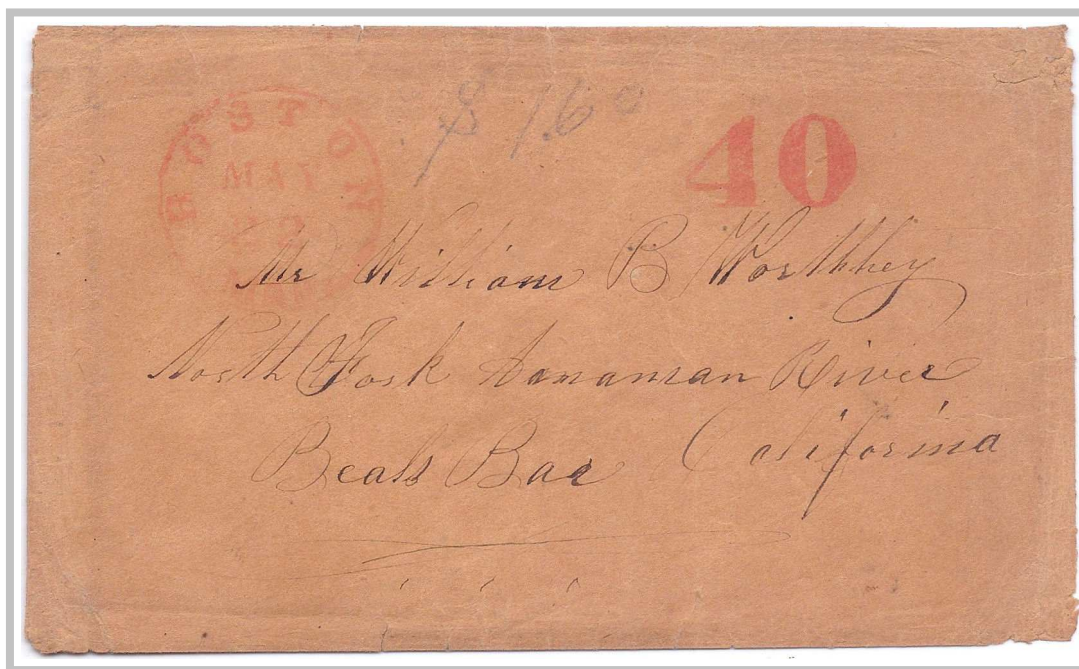 BOSTON
MAY
$1.60
40
Mr William B Worthhey
North Fork Amamman River
Beals Bar California